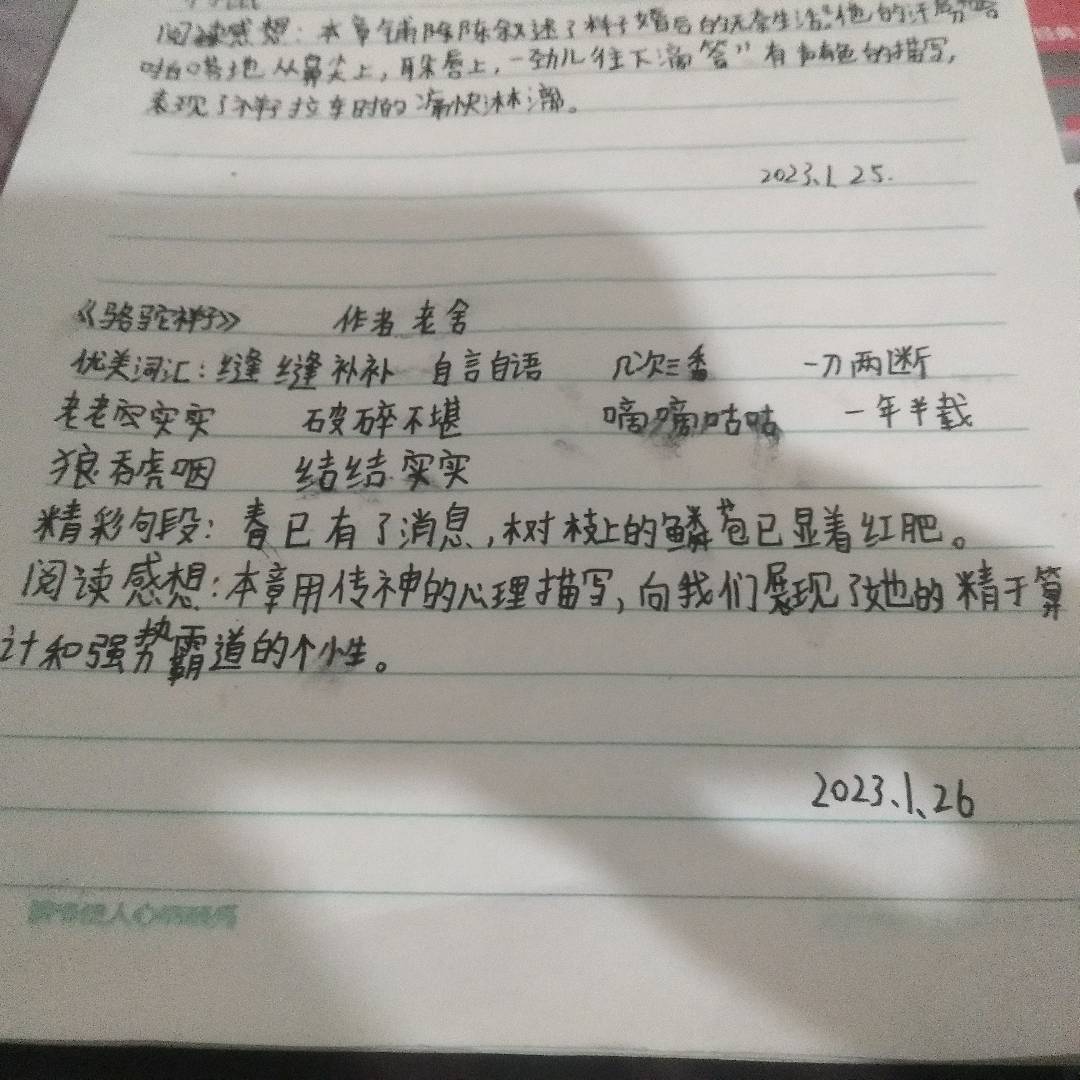 阅读感想：本章铺陈叙述了祥子婚后的无奈生活。"他的汗
吧嗒地从鼻尖上，耳朵唇上，一劲儿往下滴答"有声有色的描写，
表现了祥子拉车时的痛快淋漓。
2023.1.25.
《骆驼祥子》 作者 老舍
优美词汇：缝缝补补 自言自语 几次三番 一刀两断
老老实实 破碎不堪 嘀嘀咕咕 一年半载
狼吞虎咽 结结实实
精彩句段：春已有了消息，树枝上的鳞苞已显着红肥。
阅读感想：本章用传神的心理描写，向我们展现了她的精于算
计和强势霸道的个性。
2023.1.26